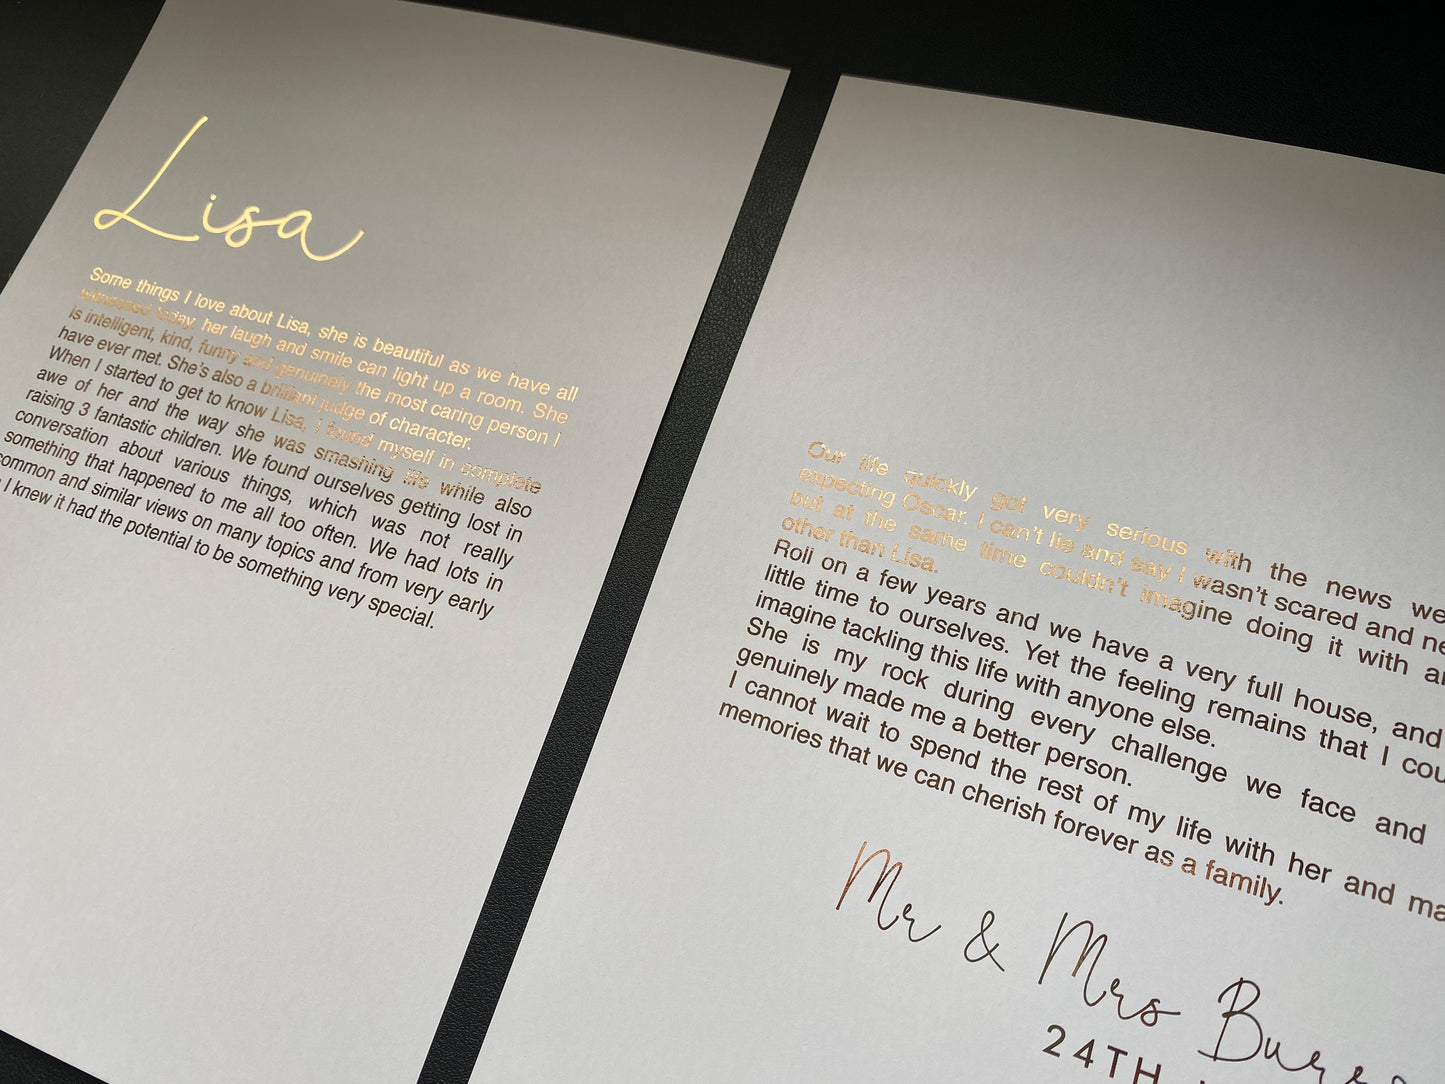 Lisa
Some things I love about Lisa, she is beautiful as we have all
witnessed today, her laugh and smile can light up a room. She
is intelligent, kind, funny and genuinely the most caring person I
have ever met. She's also a brilliant judge of character.
When I started to get to know Lisa, I found myself in complete
awe of her and the way she was smashing life while also
raising 3 fantastic children. We found ourselves getting lost in
conversation about various things, which was not really
something that happened to me all too often. We had lots in
common and similar views on many topics and from very early
I knew it had the potential to be something very special.
Our life quickly got very serious with the news we
expecting Oscar. I can't lie and say I wasn't scared and
but at the same time couldn't imagine doing it with
other than Lisa.
Roll on a few years and we have a very full house, and
little time to ourselves. Yet the feeling remains that I
imagine tackling this life with anyone else.
She is my rock during every challenge we face and
genuinely made me a better person.
I cannot wait to spend the rest of my life with her and
memories that we can cherish forever as a family.
Mr & Mrs
24TH